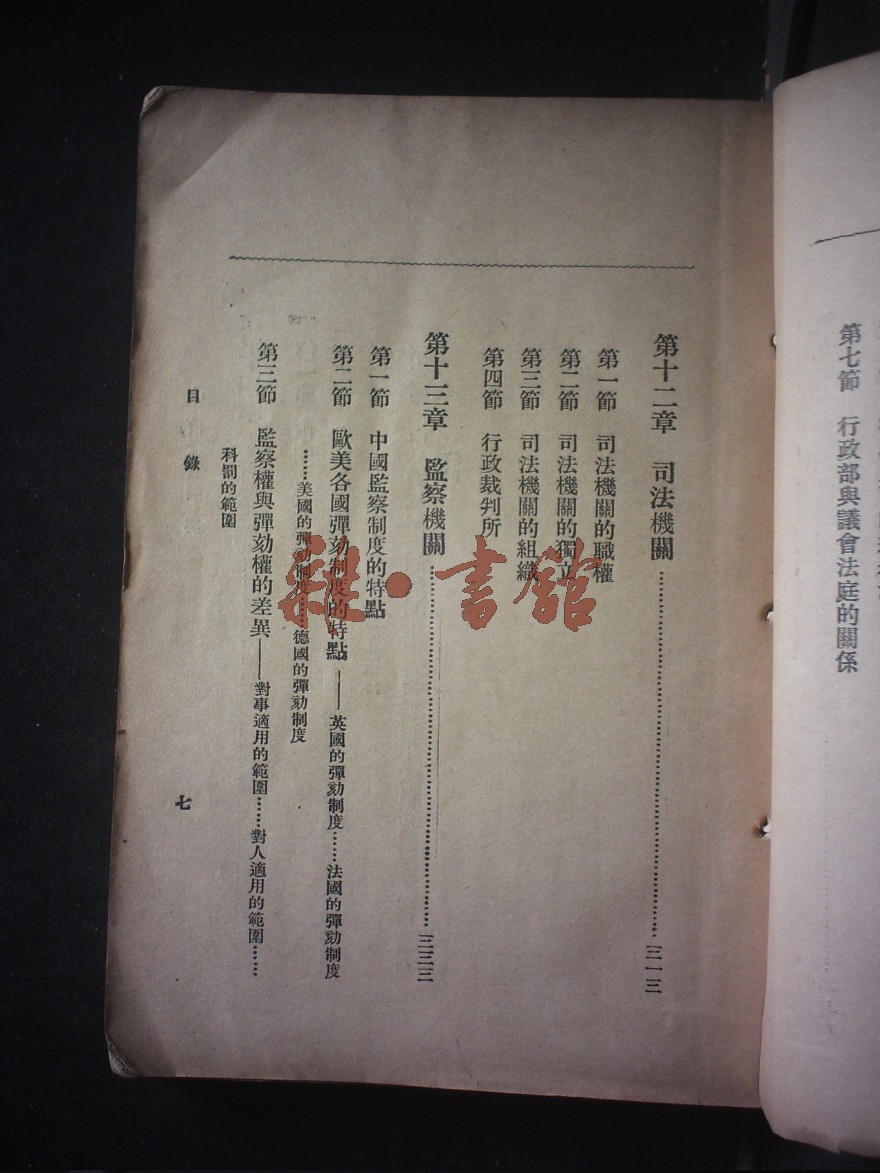 第七節　行政部與議會法庭的關係
第十二章　司法機關……三一三
第一節　司法機關的職權
第二節　司法機關的獨立
第三節　司法機關的組織
第四節　行政裁判所
第十三章　監察機關……三二三
第一節　中國監察制度的特點
第二節　歐美各國彈劾制度的特點——英國的彈劾制度……法國的彈劾制度
……美國的彈劾制度……德國的彈劾制度
第三節　監察權與彈劾權的差異——對事適用的範圍……對人適用的範圍……
科罰的範圍
目錄　七
雜·書館